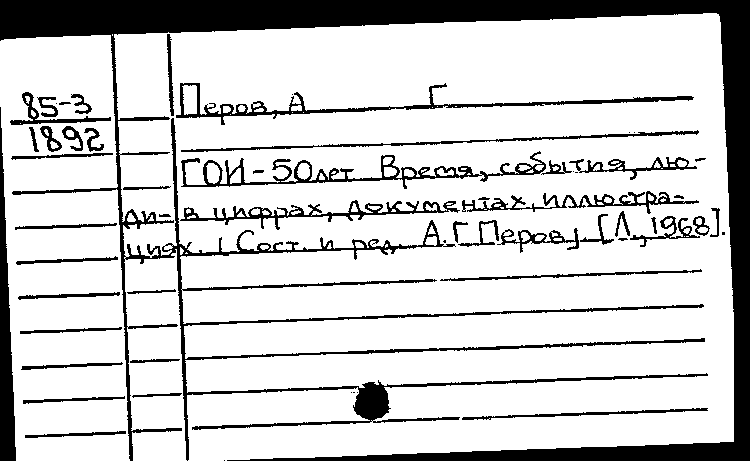 85-3
1892
Перов, А Г
ГОИ-50лет Время, события, лю-
ди- в цифрах, документах, иллюстра-
циях. (Сост. и ред. А.Г Перов). [Л., 1968].